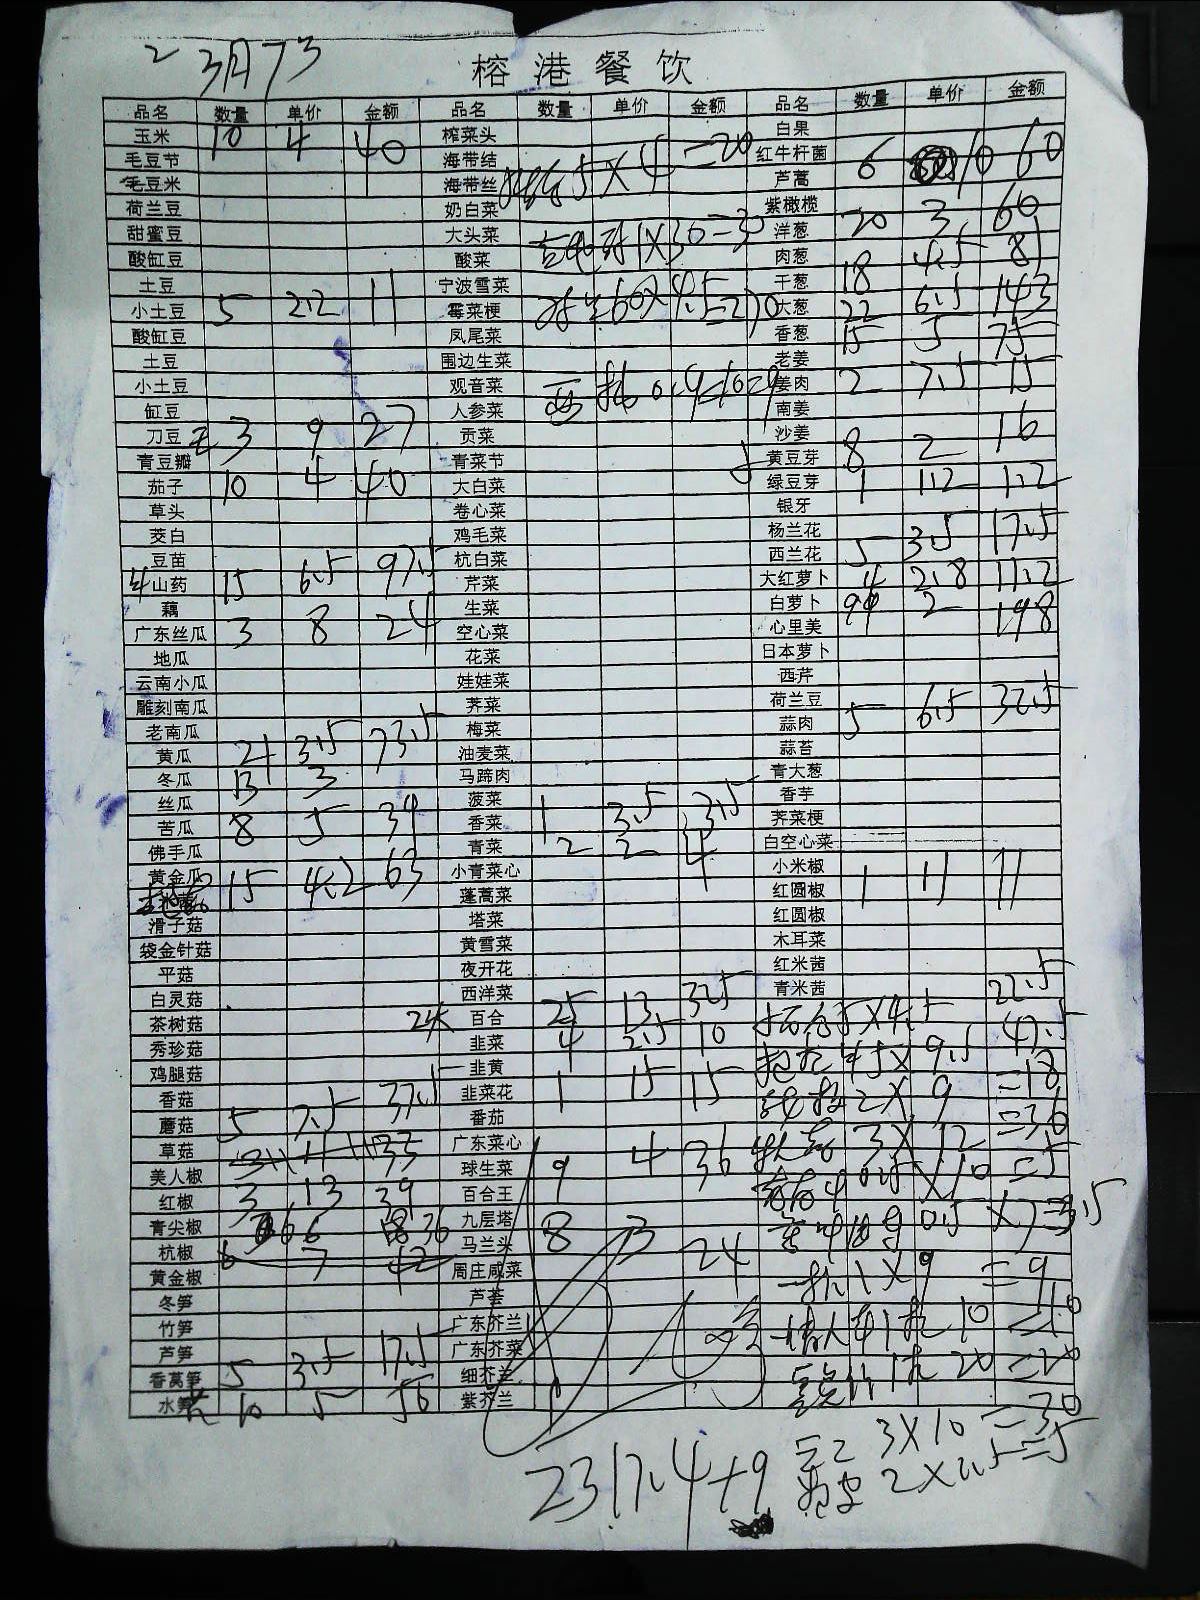 3月
榕港餐饮
品名 数量 单价 金额 品名 数量 单价 金额 品名 数量 单价 金额
玉米 10 4 40 榨菜头 白果
毛豆节 海带结 =20 红牛杆菌 6 10 60
毛豆米 海带丝 5×4 芦蒿
荷兰豆 奶白菜 紫橄榄 20 3 60
甜蜜豆 大头菜 1×30=30 洋葱
酸缸豆 酸菜 肉葱 18 4.5 81
土豆 宁波雪菜 干葱
小土豆 5 2.2 11 霉菜梗 60×4.5=270 大葱 22 6.5 143
酸缸豆 凤尾菜 香葱 15 5 75
土豆 围边生菜 老姜
小土豆 观音菜 姜肉 2 7.5 15
缸豆 人参菜 南姜
刀豆 3 9 27 贡菜 沙姜
青豆瓣 青菜节 黄豆芽 8 2 16
茄子 10 4 40 大白菜 绿豆芽 1 1.2 1.2
草头 卷心菜 银牙
茭白 鸡毛菜 杨兰花
豆苗 杭白菜 西兰花 5 3.5 17.5
山药 15 6.5 97.5 芹菜 大红萝卜 4 2.8 11.2
藕 生菜 白萝卜 99 2 198
广东丝瓜 3 8 24 空心菜 心里美
地瓜 花菜 日本萝卜
云南小瓜 娃娃菜 西芹
雕刻南瓜 荠菜 荷兰豆
老南瓜 梅菜 蒜肉 5 6.5 32.5
黄瓜 21 3.5 73.5 油麦菜 蒜苔
冬瓜 13 3 马蹄肉 青大葱
丝瓜 菠菜 香芋
苦瓜 8 5 香菜 1 3.5 3.5 荠菜梗
佛手瓜 青菜 2 2 4 白空心菜
黄金瓜 小青菜心 小米椒
15 4.2 63 蓬蒿菜 红圆椒 1 11 11
滑子菇 塔菜 红圆椒
袋金针菇 黄雪菜 木耳菜
平菇 夜开花 红米茜
白灵菇 西洋菜 青米茜
茶树菇 百合 25 13 325 5×4.5 22.5
秀珍菇 韭菜 4 2.5 10
鸡腿菇 韭黄 5×9.5 47.5
香菇 韭菜花 1 15 15 2×9 =18
蘑菇 5 7.5 37.5 番茄
草菇 广东菜心 3×12 =36
美人椒 球生菜 9 4 36 0.5×10 =5
红椒 3 13 39 百合王
青尖椒 6 6 36 九层塔 0.5×7=3.5
杭椒 6 7 42 马兰头 8 3 24
黄金椒 周庄咸菜 1×9 =9
冬笋 芦荟
竹笋 广东芥兰 10 =10
芦笋 广东芥菜
香莴笋 5 3.5 17.5 细芥兰 20 =20
水笋 10 5 紫芥兰
3×10=30
2×2.5=5
2317.4+9